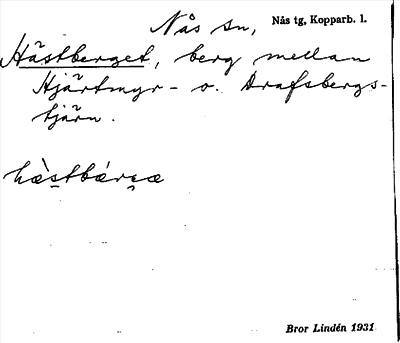 Nås sn, Nås tg, Kopparb. l.
Hästberget, berg mellan
Hjärtmyr- o. Drafsbergs-
tjärn.
hæ̀stbárɕæ
Bror Lindén 1931